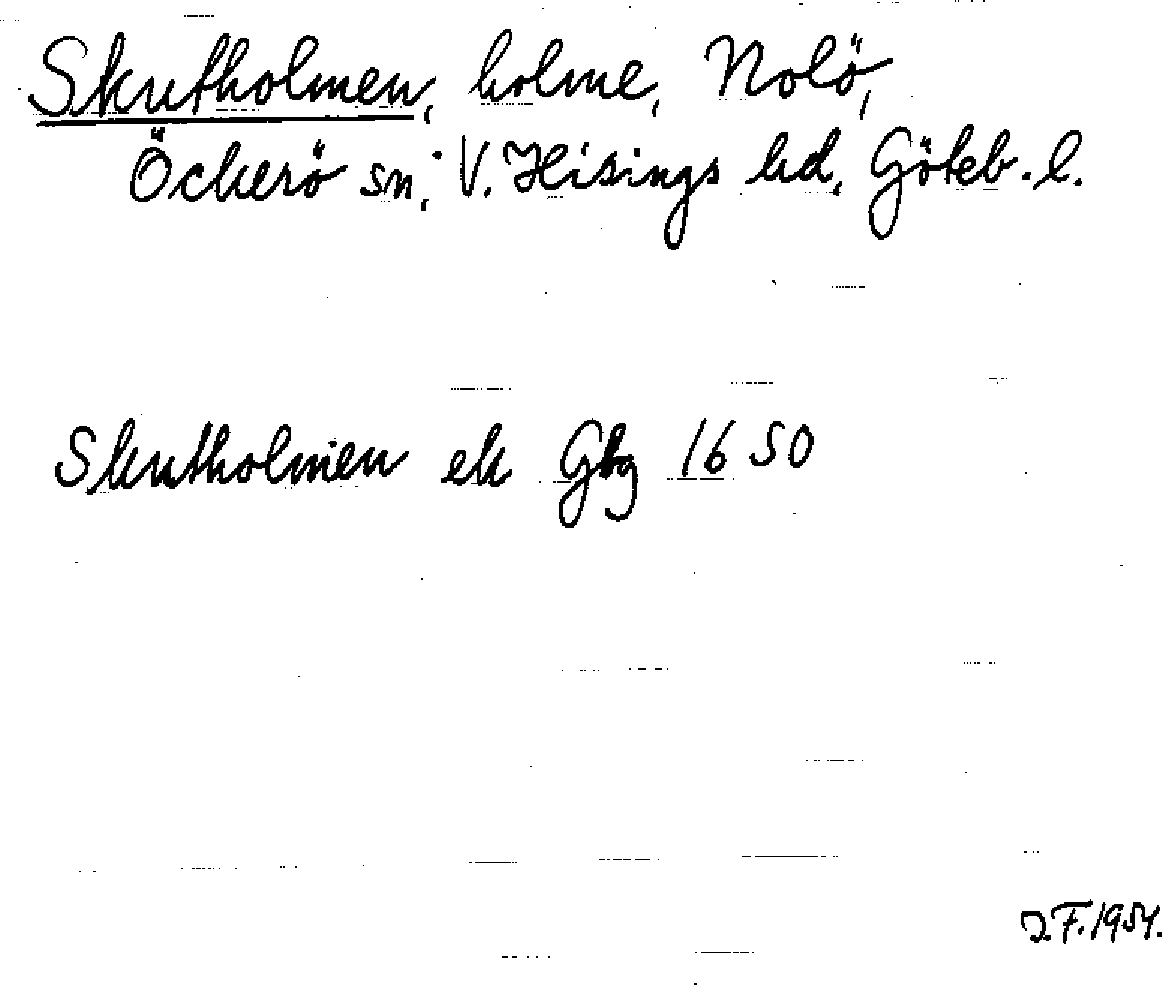 Skutholmen, holme, Nolö,
Öckerö sn, V. Hisings hd, Göteb. l.
Skutholmen ek Gbg 1650
J.F. 1954.